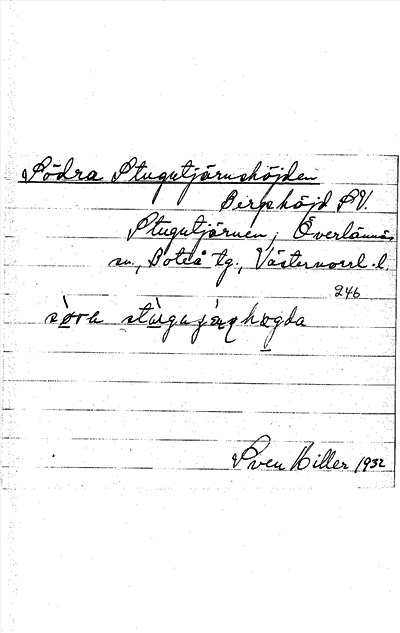 Södra Stugutjärnshöjden
Bergshöjd SV.
Stugutjärnen, Överlännäs
sn., Boteå tg., Västernorrl. l.
246
søra
Sven Hiller 1932